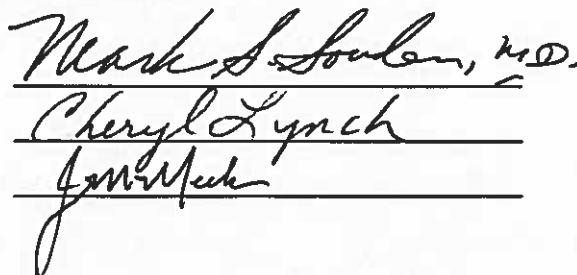 Mark S. Soulen, M.D.
Cheryl Lynch